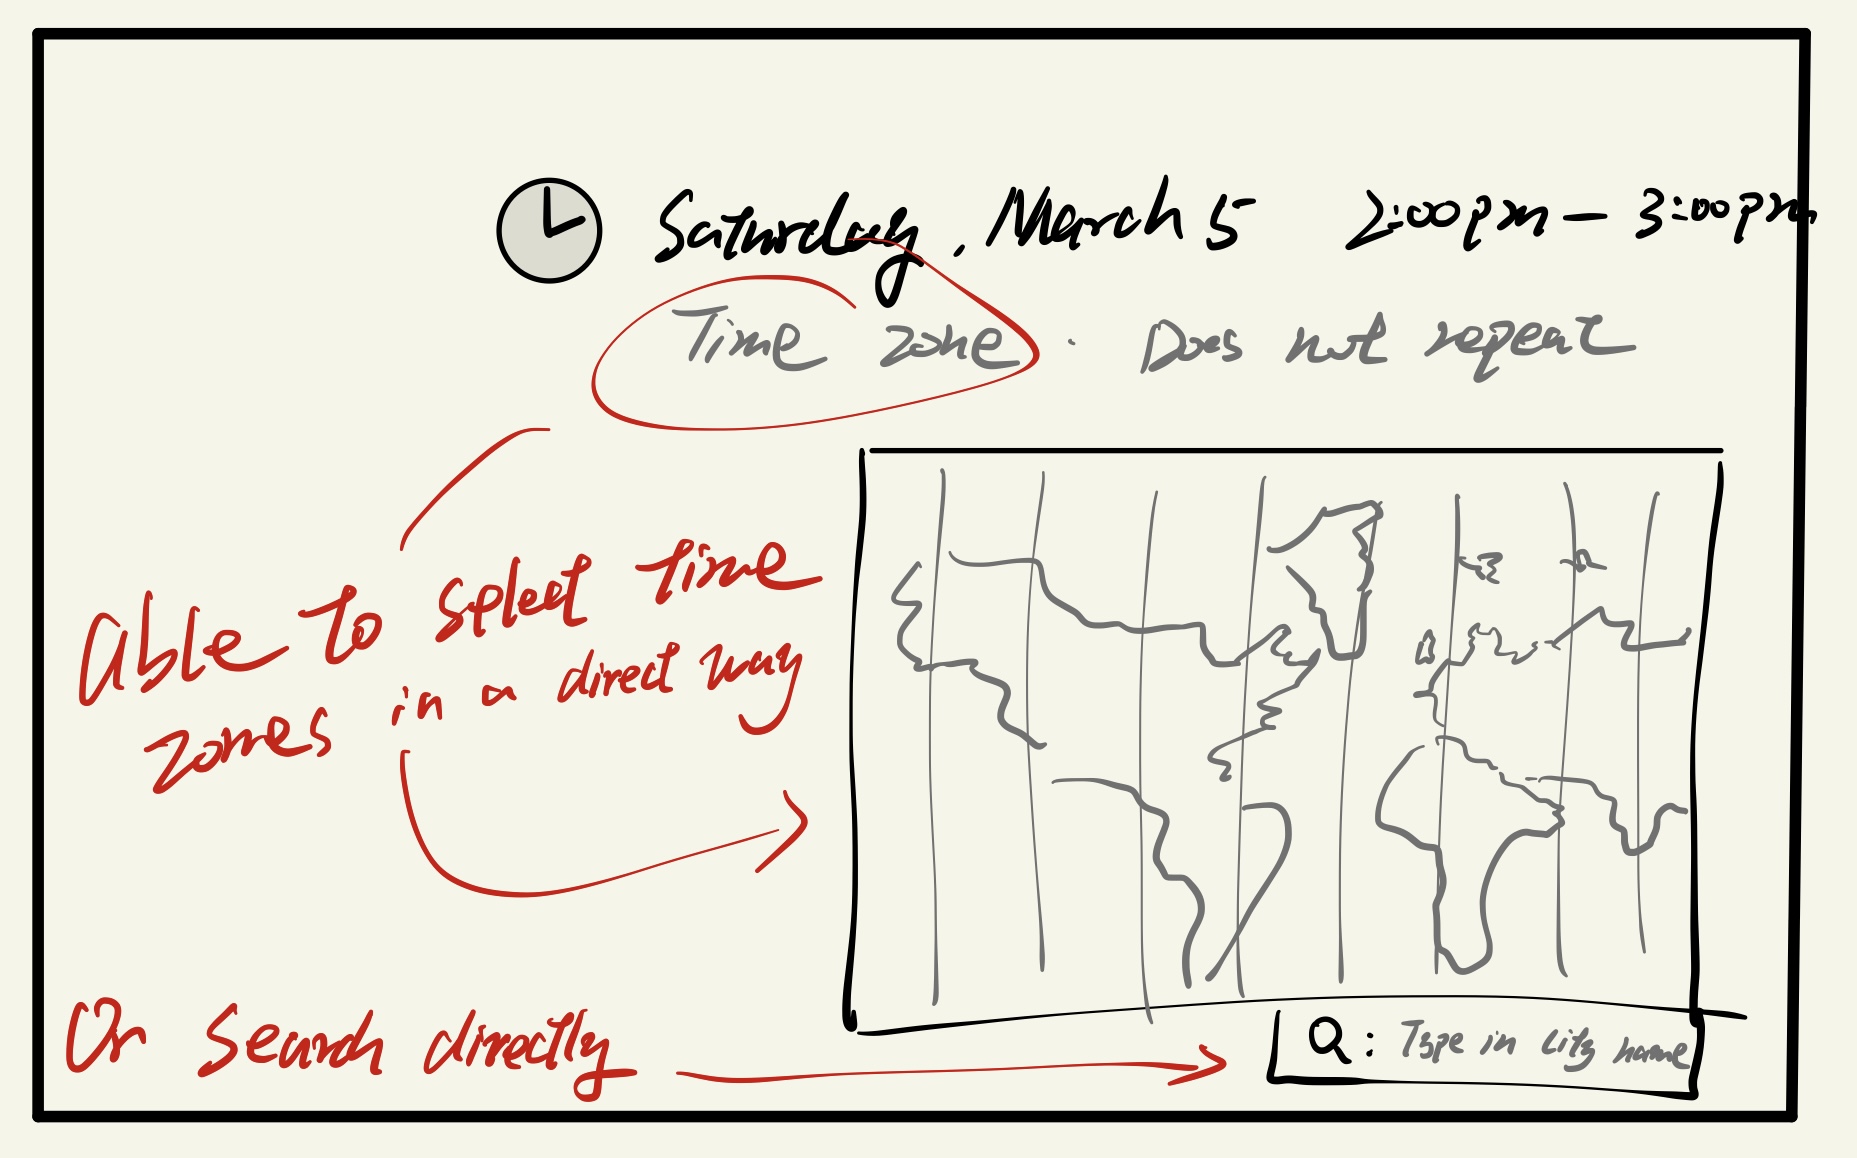 Saturday, March 5 2:00pm - 3:00pm
Time zone · Does not repeat
able to splect time
zones in a direct way
Or search directly
Q: Type in city name